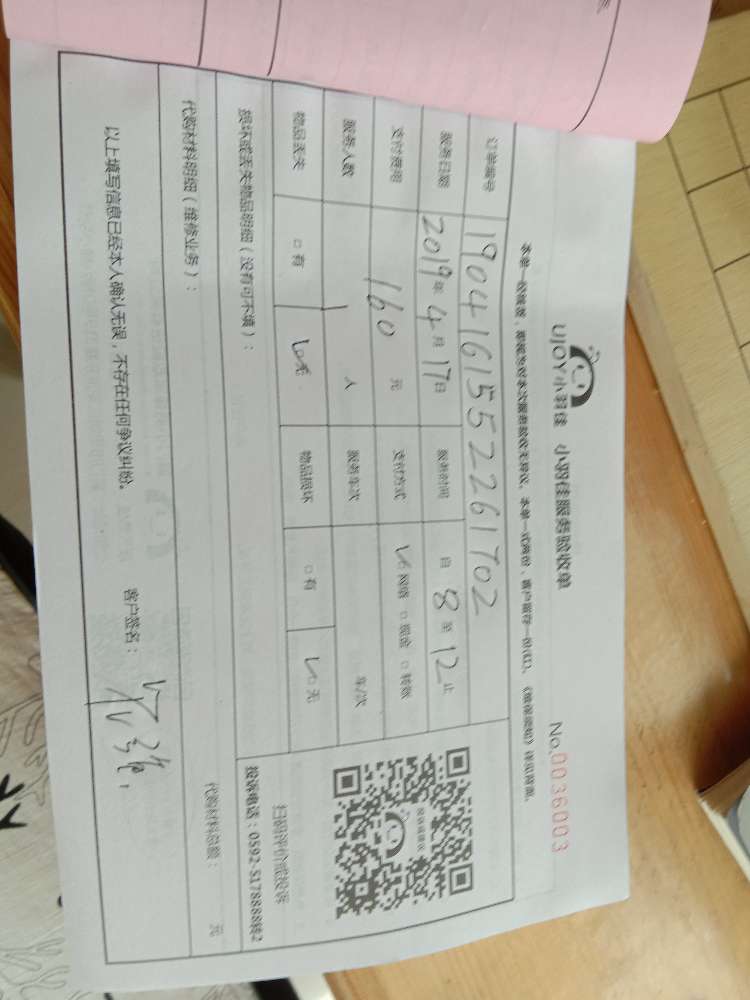 UJOY小羽佳 小羽佳服务验收单
No.0036003
本单一经签字，即视为对本次服务验收无异议。本单一式两份，客户留存一份(红)。
订单编号 1904161552261702
服务日期 2019年4月17日 服务时间 自8至12止
支付费用 160元 支付方式 □网络 □现金 □转账
服务人数 1人 服务车次 车/次
物品丢失 □有 □无 物品损坏 □有 □无
损坏或丢失物品明细（没有可不填）：
扫码评价或投诉
投诉电话：0592-5178888转2
代购材料明细（维修业务）：
代购材料总额： 元
以上填写信息已经本人确认无误，不存在任何争议纠纷。
客户签名：